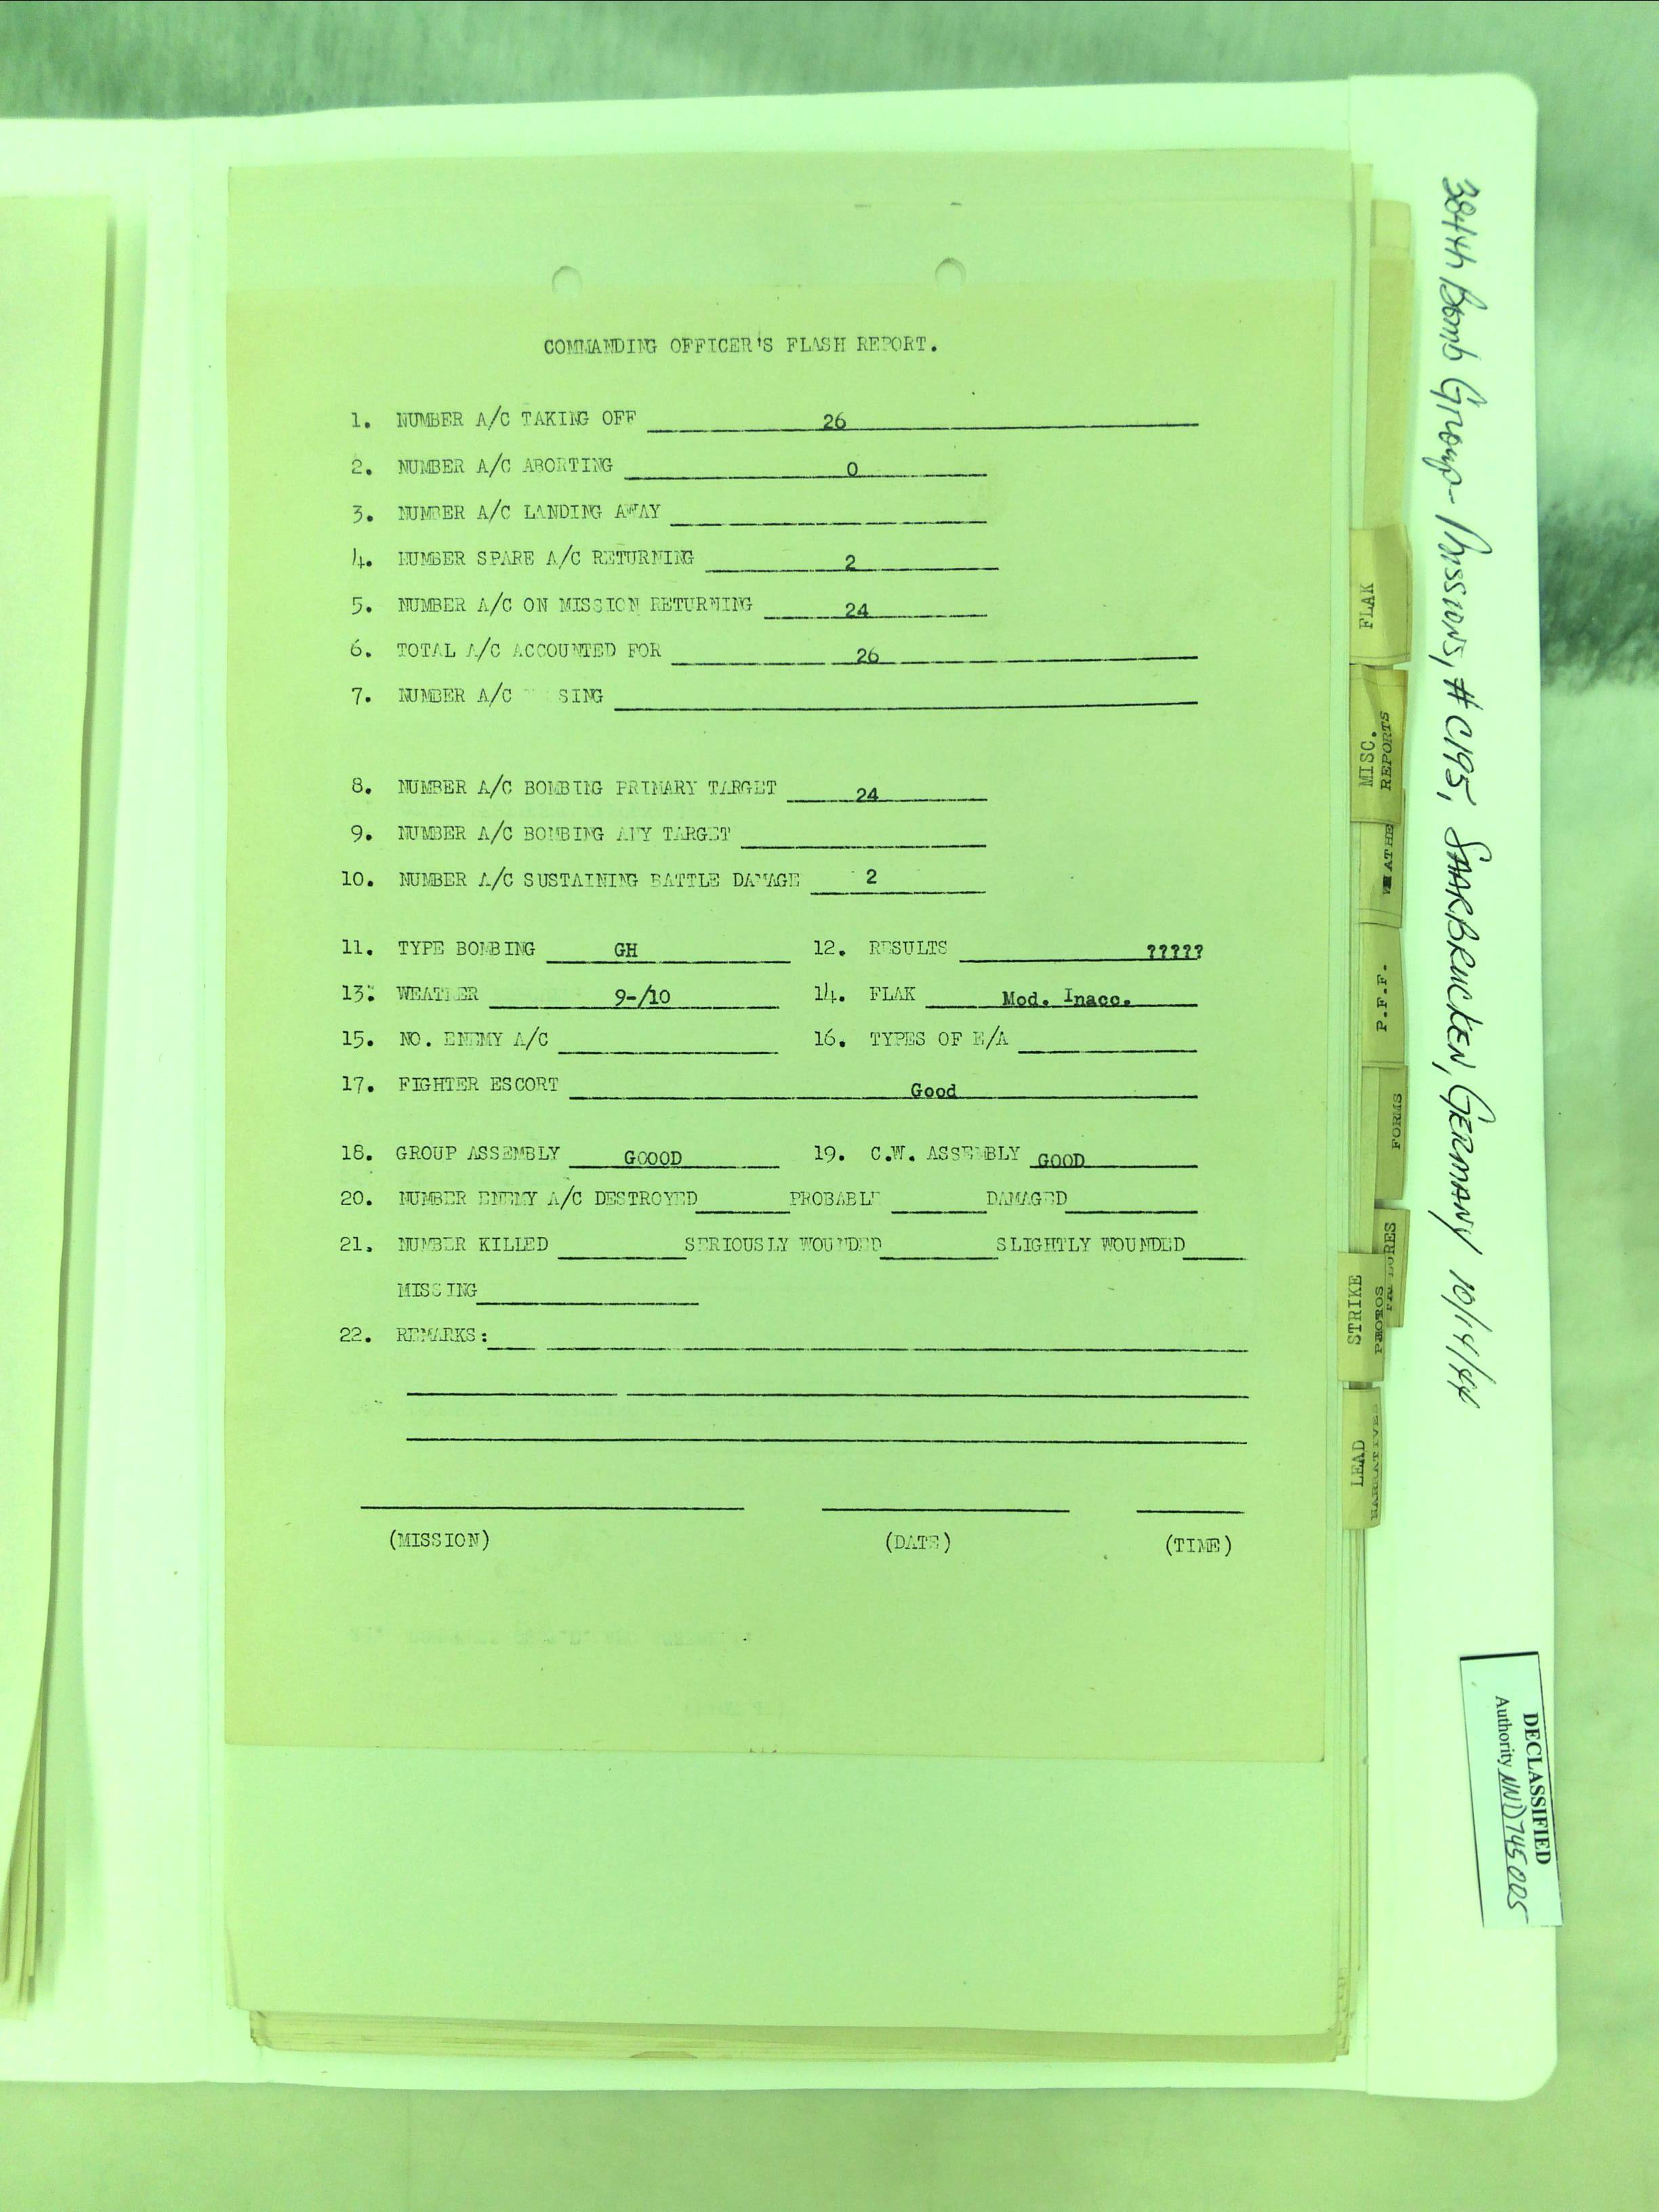 COMMANDING OFFICER'S FLASH REPORT.
1. NUMBER A/C TAKING OFF 26
2. NUMBER A/C ABORTING 0
3. NUMBER A/C LANDING AWAY
4. NUMBER SPARE A/C RETURNING 2
5. NUMBER A/C ON MISSION RETURNING 24
6. TOTAL A/C ACCOUNTED FOR 26
7. NUMBER A/C SING
8. NUMBER A/C BOMBING PRIMARY TARGET 24
9. NUMBER A/C BOMBING ANY TARGET
10. NUMBER A/C SUSTAINING BATTLE DAMAGE 2
11. TYPE BOMBING GH 12. RESULTS ?????
13. WEATHER 9-/10 14. FLAK Mod. Inacc.
15. NO. ENEMY A/C 16. TYPES OF E/A
17. FIGHTER ESCORT Good
18. GROUP ASSEMBLY GOOOD 19. C.W. ASSEMBLY GOOD
20. NUMBER ENEMY A/C DESTROYED PROBABLE DAMAGED
21. NUMBER KILLED SERIOUSLY WOUNDED SLIGHTLY WOUNDED
MISSING
22. REMARKS:
(MISSION) (DATE) (TIME)
FLAK
MISC.
REPORTS
ATHE
P.F.F.
FORMS
STRIKE
PHOTOS
LEAD
NARRATIVES
384th Bomb Group- Missions, # C195, SAARBRUCKEN, GERMANY 10/14/44
DECLASSIFIED
Authority NND745005